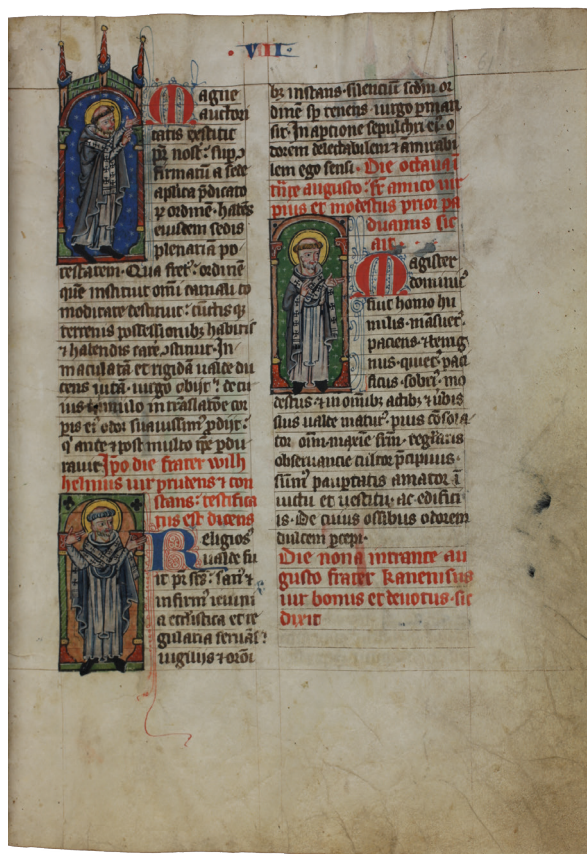 · VIII ·
Magne
auctori
tatis extitit
pr̄ nost̄: sup̄
firmatū a sede
aplica p̄dicato
ꝝ ordinē· habēs
eiusdem sedis
plenariā po
testatem· Qua fret⁹ : ordinē
quē instituit om̄i carnali co
moditate destituit : cūctis qꝫ
terrenis possessionibꝫ habitis
⁊ habendis care
In
maculatā et rigidā ualde du
cens uitā· uirgo obijt : de cu
ius tumulo in trāslatōe cor
pis ei⁹ odor suauissim⁹ ꝓdijt :
q̇ ante ⁊ post multo tp̄e ꝑdu
rauit Ip̄o die frater wilh
helmus uir prudens ⁊ con
stans : testifica
tus est dicens
Religios⁹
ualde fu
it pr̄ scs̄ :
infirm⁹
ecc̄istica et re
gularia seruās :
uigilijs ⁊ or̄oni
bꝫ instans· silenciū scd̄m or
dinē sp̄ tenens· uirgo ꝑman
sit· In aptione sepulchri ei⁹· o
dorem delectabilem ⁊ amirabi
lem ego sensi· Die octaua ī
tr̄te augusto: fr̄ amico uir
pius et modestus prior pa
duanus sic
ait·
Magister
dominic⁹
fuit homo hu
milis· māsuet⁹·
paciens· ⁊ benig
nus· quiet⁹· paci
ficus· sobri⁹· mo
destus· ⁊ in om̄ibꝫ actibꝫ ⁊ ūbis
suis ualde matur⁹· pius cōsola
tor om̄· maxie frm̄· regl̄aris
obseruancie cultor p̄cipuus·
sūm⁹ paupertatis amator ī
uictu et uestitu· ac edifici
is· De cuius ossibus odorem
dulcem ꝑcepi·
Die nona intrante au
gusto frater Kanenisus
uir bonus et deuotus· sic
dixit